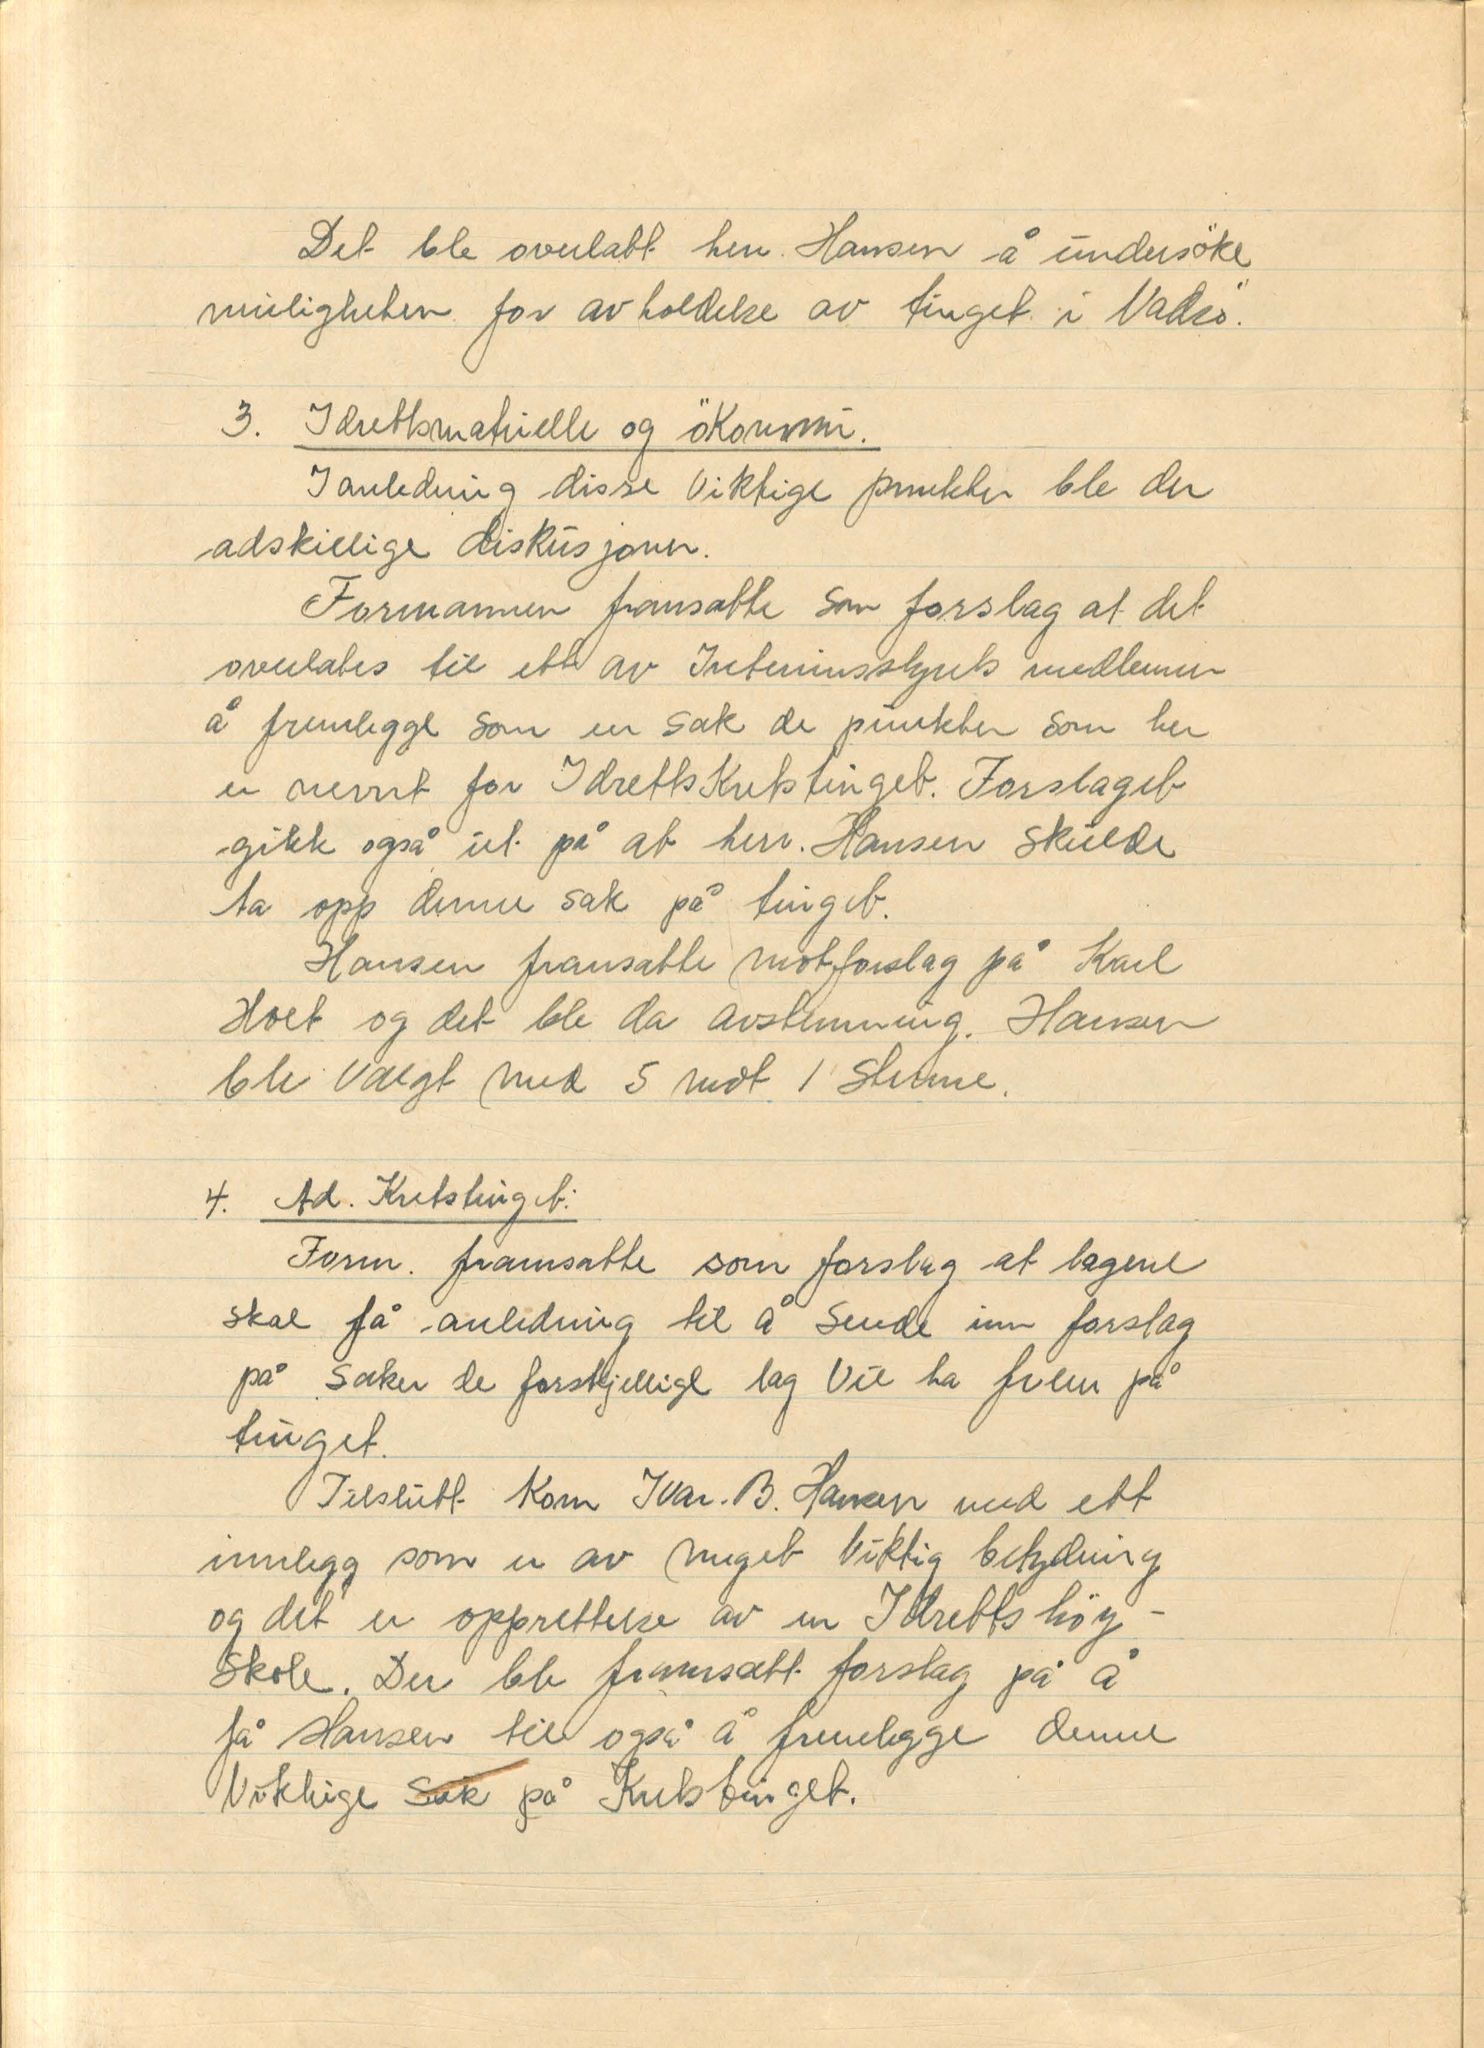 Det ble overlatt herr. Hansen å undersöke
muligheten for avholdelse av tinget i Vadsö.
3. Idrettsmatrielle og ökonomi.
I anledning disse viktige punkter ble der
adskillige diskusjoner.
Formannen framsatte som forslag at det
overlates til ett av Interimsstyrets medlemmer
å fremlegge som en sak de punkter som her
er nevnt for Idretts Kretstinget. Forslaget
gikk også ut på at herr. Hansen skulde
ta opp denne sak på tinget.
Hansen framsatte motforslag på Karl
Holt og det ble da avstemning. Hansen
ble valgt med 5 mot 1 stemme.
4. Ad. Kretstinget:
Form. framsatte som forslag at lagene
skal få anledning til å sende inn forslag
på saker de forskjellige lag vil ha frem på
tinget.
Tilslutt kom Ivar. B. Hansen med ett
innlegg som er av meget viktig betydning
og det er opprettelse av en Idrettshöy-
skole. Der ble framsatt forslag på å
få Hansen til også å fremlegge denne
viktige sak på Kretstinget.